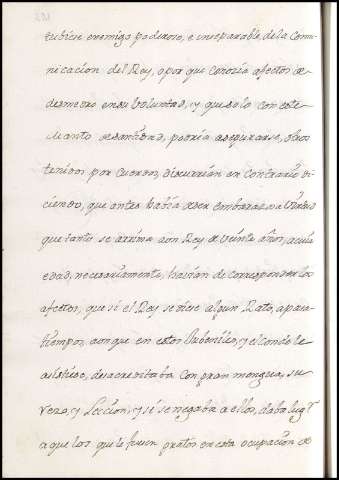 tubiese enemigo poderoso, e inseparable, de la Comu
nicacion del Rey, o por que Conozia afectos de
desmedro en su Voluntad, y que solo con este
Manto de santidad, podria asegurarse, otros
tenidos por Cuerdos, discurrian en Contrario di
ciendo, que antes habia de ser embarazo a la
que tanto se arrima a un Rey de Veinte años, a cuia
edad, necesariamente, habian de corresponder los
afectos, que si el Rey se diese algun Rato, a pasa
tiempos, aunque en estos Rubenillo, y el Conde le
asistiese, desacreditaba con gran mengua, su
Verso, y Leccion, y si se negaba a ellos, daba lugr
a que los que le fuesen gratos en esta ocupacion de